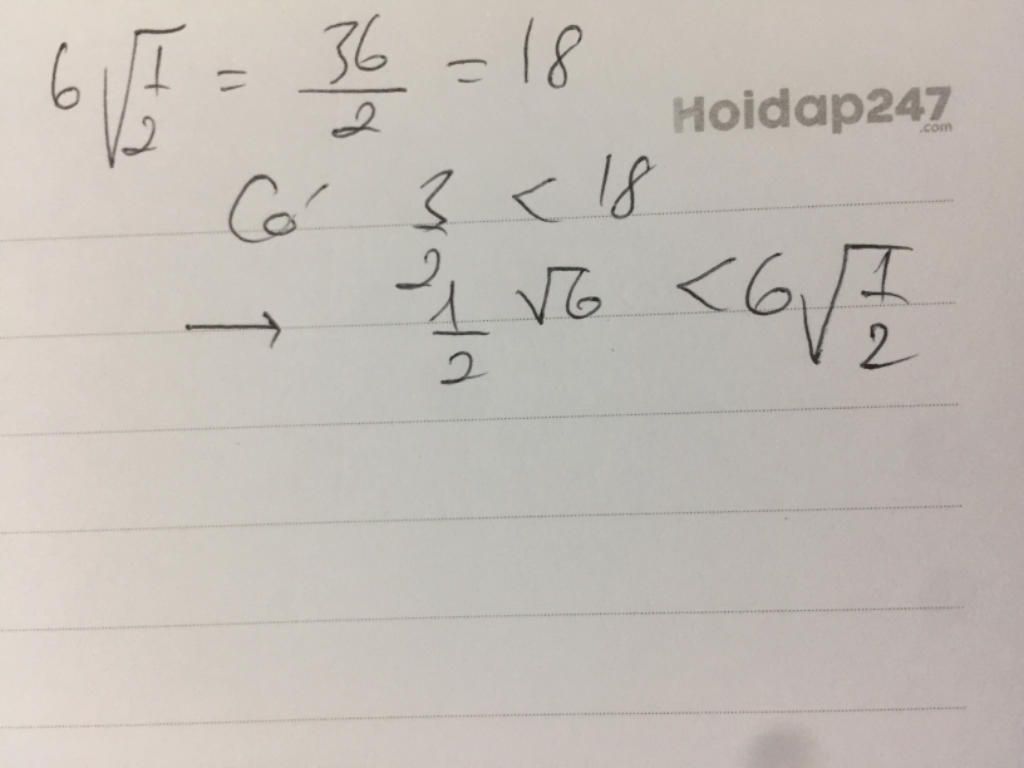 6√(1/2) = 36/2 = 18
Hoidap247
.com
Có 3/2 < 18
→ 1/2 √6 < 6√(1/2)